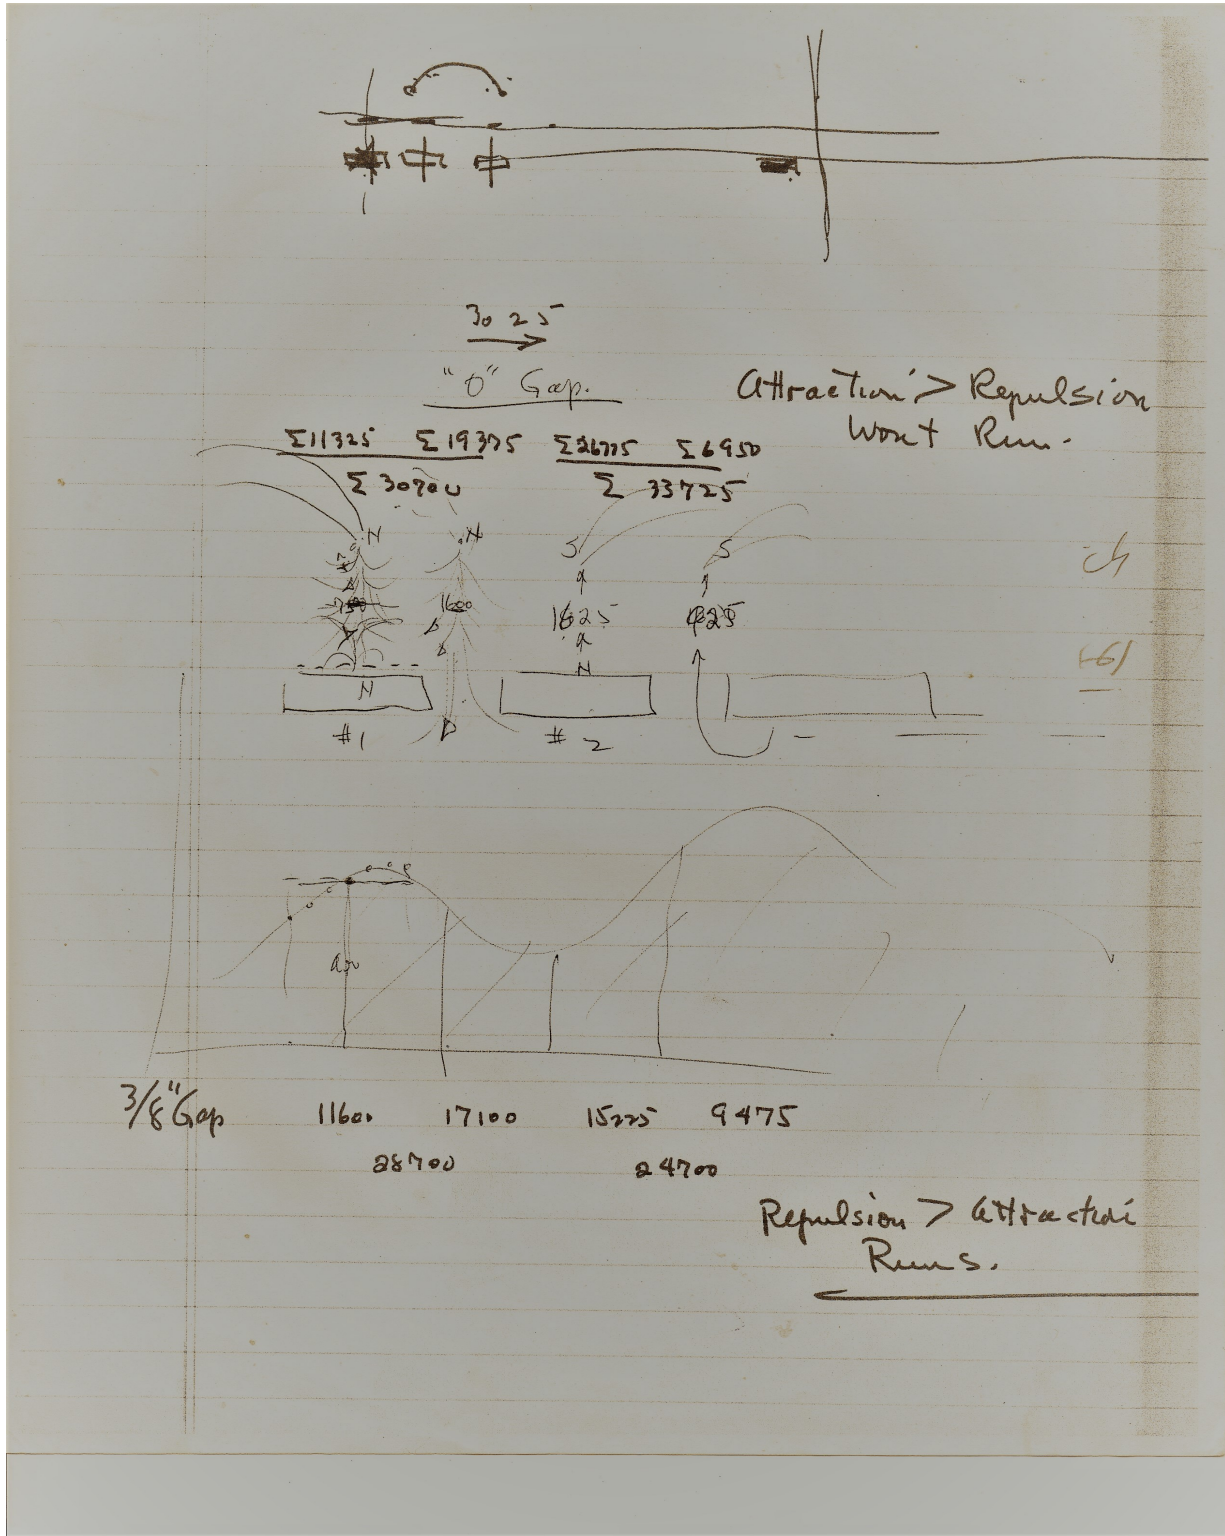 30 25
"0" Gap.
Attraction > Repulsion
Wont Run.
Σ11325 Σ19375 Σ26775 Σ6950
Σ 30700 Σ 33725
N N S S
1600 1625
N N
#1 #2
3/8" Gap 11600 17100 15225 9475
28700 24700
Repulsion > Attraction
Runs.